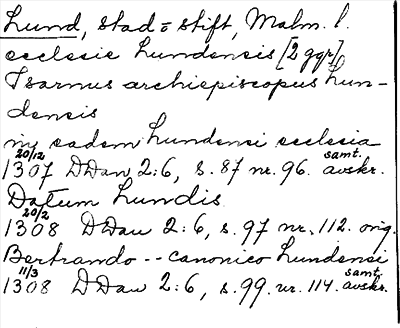 Lund, stad o stift, Malm. l.
ecclesie Lundensis [2 ggr]
Isarnus archiepiscopus Lun-
densis
in eadem Lundensi ecclesia
20/12 1307 DDan 2:6, s. 87 nr. 96. samt. avskr.
Datum Lundis
20/2 1308 DDan 2:6, s. 97 nr. 112. orig.
Bertrando -- canonico Lundensi
11/3 1308 DDan 2:6, s. 99. nr. 114. samt. avskr.